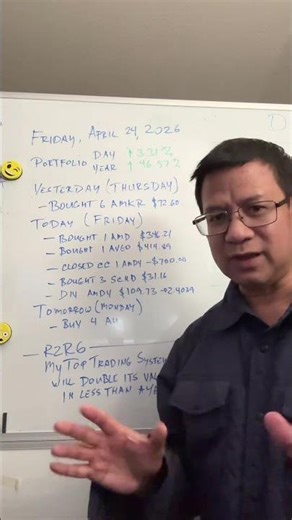 FRIDAY, APRIL 24, 2026
PORTFOLIO DAY ↑ 3.31%
YEAR ↑ 46.57%
YESTERDAY (THURSDAY)
- BOUGHT 6 AMKR $72.60
TODAY (FRIDAY)
- BOUGHT 1 AMD $346.21
- BOUGHT 1 AVGO $419.89
- CLOSED CC 1 AMDY -$700.00
- BOUGHT 3 SCHD $31.16
- DIV AMDY $109.73
TOMORROW (MONDAY)
- BUY 4
R2R6
MY TOP TRADING SYSTEM
WILL DOUBLE ITS
IN LESS THAN